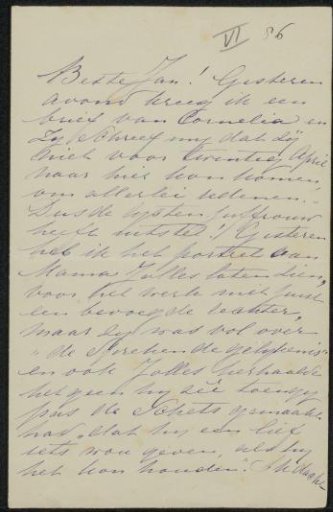 VI 86
Beste Jan! Gisteren
avond kreeg ik een
brief van Cornelia en
zy schreef my dat zy
niet voor twintig April
naar hier kon komen
om allerlei redenen.
Dus de juffrouw
heeft uitstel! Gisteren
heb ik het portret aan
Mama Jolles laten zien,
voor het werk niet juist
een bevoegde
maar zy was vol over
"de sprekende gelykenis"
en ook Jolles herhaalde
hetgeen hy zei toen gy
pas de schets gemaakt
had, dat hy een lief
iets wou geven, als hy
het kon houden.